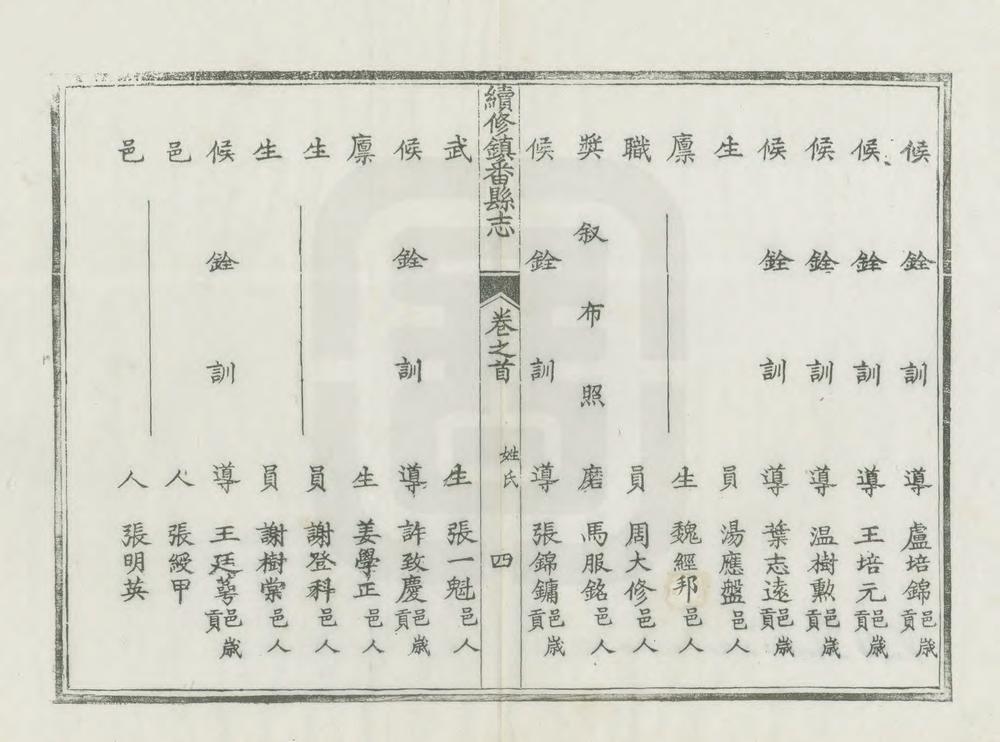 候銓訓導 盧培錦 邑歲貢
候銓訓導 王培元 邑歲貢
候銓訓導 温樹勲 邑歲貢
候銓訓導 葉志遠 邑歲貢
生員 湯應盤 邑人
廪生 魏經邦 邑人
職員 周大修 邑人
奨叙布照磨 馬服銘 邑人
候銓訓導 張錦鏞 邑歲貢
續修鎮番縣志 卷之首 姓氏 四
武生 張一魁 邑人
候銓訓導 許致慶 邑歲貢
廪生 姜學正 邑人
生員 謝登科 邑人
生員 謝樹棠 邑人
候銓訓導 王廷蕚 邑歲貢
邑人 張綬甲
邑人 張明英